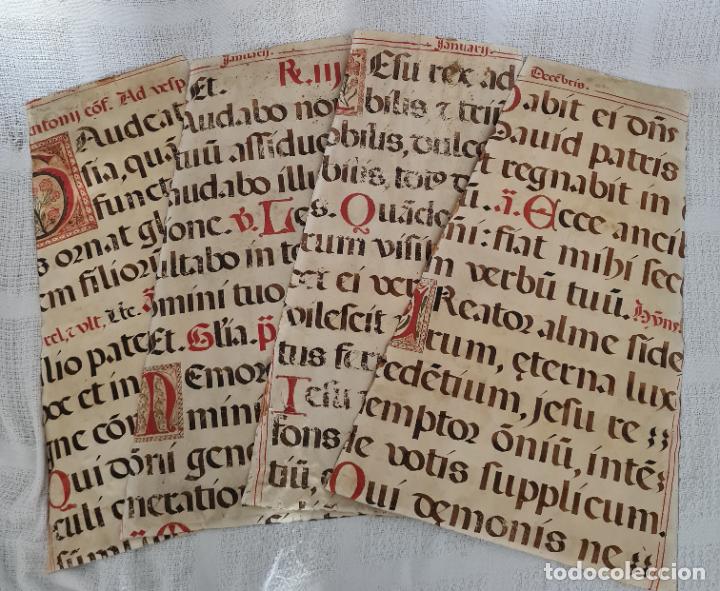 Antonij cōf. Ad vesp
Audeat
sia, quā
funct
s ornat gl
em filiorū
rcel, z vlt,
lio pate
ox et in
Qui dōni
culi
Januarij.
Et. R. iij
audabo no
tuū assiduo
audabo illu
ione. v. Le
ultabo in te
omini tuo
Et. Glīa. p̄
Nemor
mini
gene
eneration
Januarij.
Iesu rex ad
bilis z trii
obilis, dulce
biilis, totꝰ d
s. Quādo
tum visit
cet ei ver
vilescit
tus fer
Iesu
fons
tiū,
Decēbris.
abit ei dn̄s
Dauid patris
t regnabit in d
ū. ā. Ecce ancil
n̄i: fiat mihi sec
m verbū tuū. Hȳns.
Creator alme side
rum, ęterna lux
redētium, Jesu re
emptor ōniū, intē
de votis supplicum.
Qui dęmonis ne
todocoleccion.net